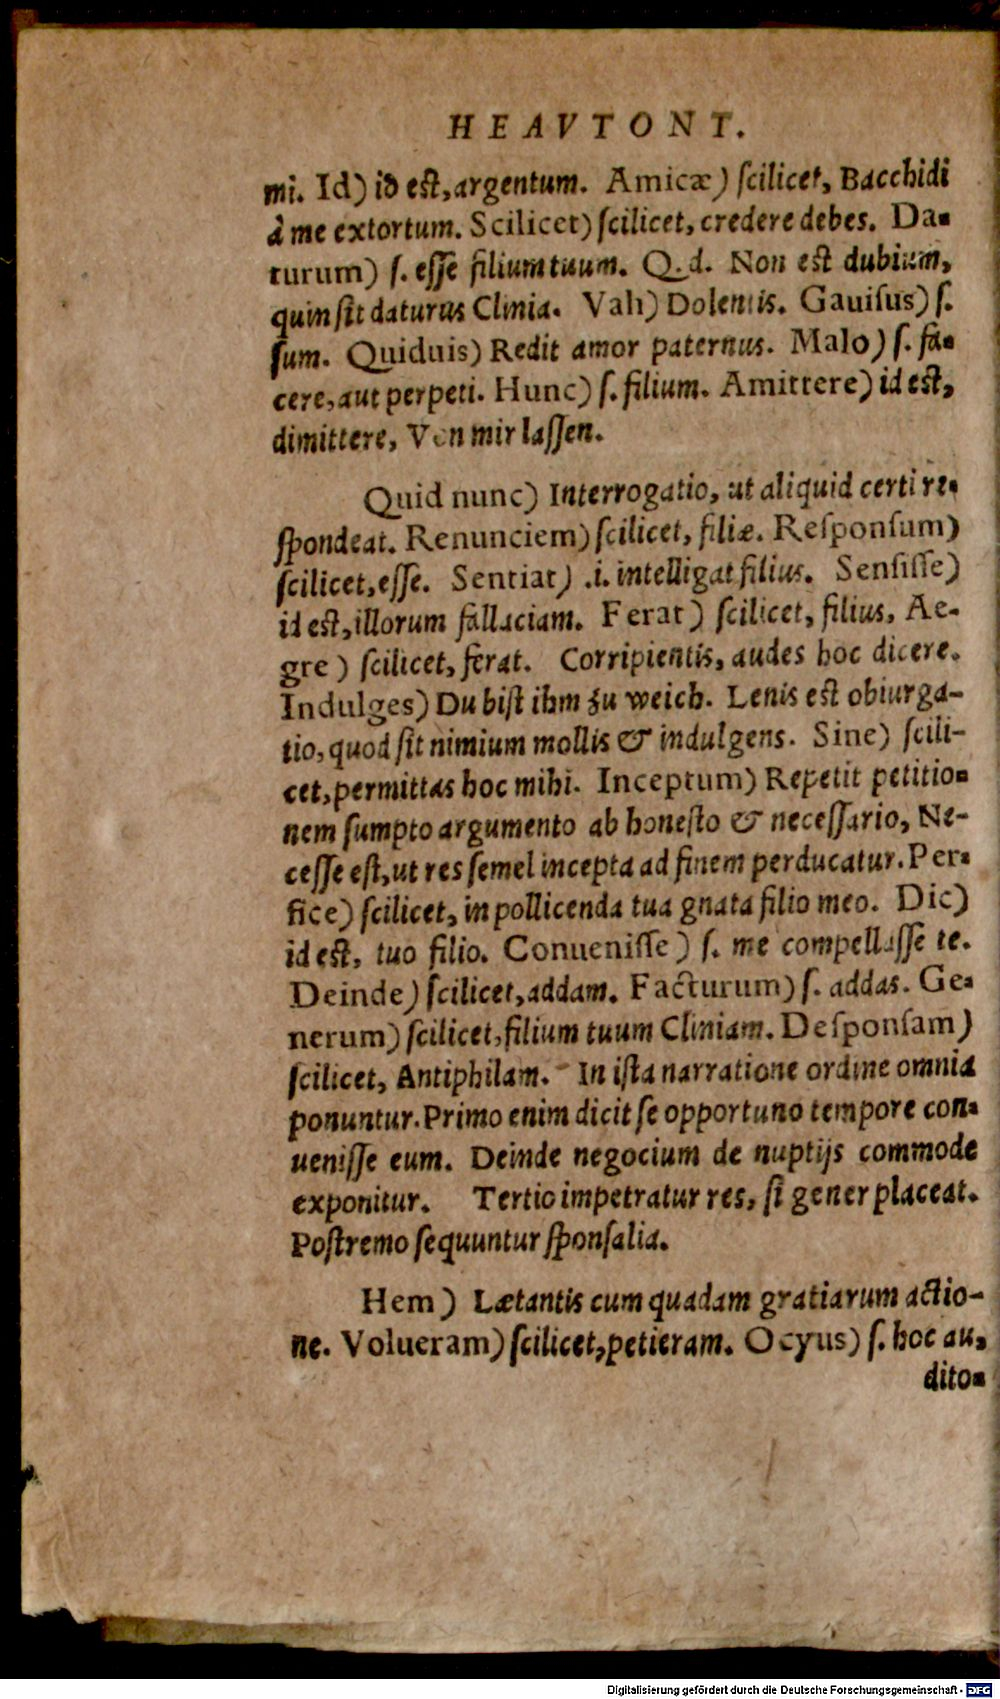 HEAVTONT.
mi. Id) id est, argentum. Amicæ) ſcilicet, Bacchidi
à me extortum. Scilicet) ſcilicet, credere debes. Da-
turum) ſ. eſſe filium tuum. Q.d. Non est dubium,
quin ſit daturus Clinia. Vah) Dolentis. Gauiſus) ſ.
ſum. Quiduis) Redit amor paternus. Malo) ſ. fa-
cere, aut perpeti. Hunc) ſ. filium. Amittere) id est,
dimittere, Von mir laſſen.
Quid nunc) Interrogatio, ut aliquid certi re-
ſpondeat. Renunciem) ſcilicet, filiæ. Reſponſum)
ſcilicet, eſſe. Sentiat) .i. intelligat filius. Senſiſſe)
id est, illorum fallaciam. Ferat) ſcilicet, filius, Ae-
gre) ſcilicet, ferat. Corripientis, audes hoc dicere.
Indulges) Du biſt ihm zu weich. Lenis est obiurga-
tio, quod ſit nimium mollis & indulgens. Sine) ſcili-
cet, permittas hoc mihi. Inceptum) Repetit petitio-
nem ſumpto argumento ab honeſto & neceſſario, Ne-
ceſſe eſt, ut res ſemel incepta ad finem perducatur. Per-
fice) ſcilicet, in pollicenda tua gnata filio meo. Dic)
id est, tuo filio. Conueniſſe) ſ. me compellaſſe te.
Deinde) ſcilicet, addam. Facturum) ſ. addas. Ge-
nerum) ſcilicet, filium tuum Cliniam. Deſponſam)
ſcilicet, Antiphilam. In iſta narratione ordine omnia
ponuntur. Primo enim dicit ſe opportuno tempore con-
ueniſſe eum. Deinde negocium de nuptijs commode
exponitur. Tertio impetratur res, ſi gener placeat.
Poſtremo ſequuntur ſponſalia.
Hem) Lætantis cum quadam gratiarum actio-
ne. Volueram) ſcilicet, petieram. Ocyus) ſ. hoc au,
dito-
Digitalisierung gefördert durch die Deutsche Forschungsgemeinschaft - DFG